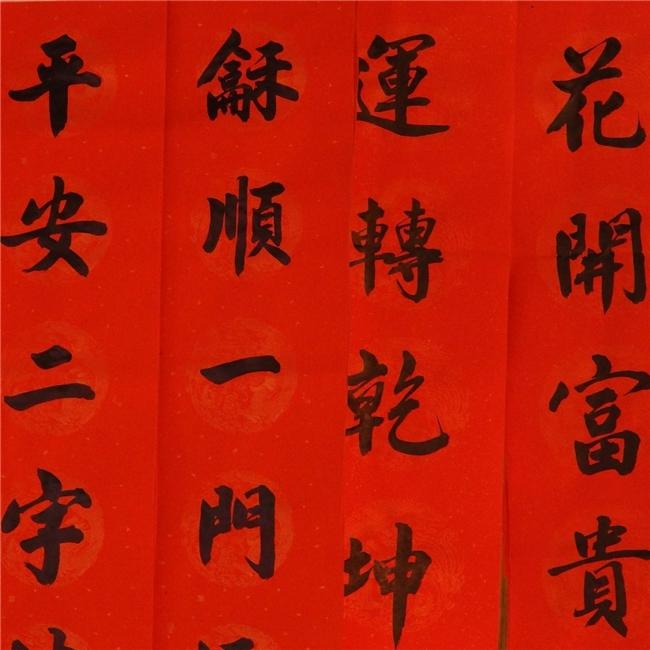 花開富貴
運轉乾坤
龢順一門
平安二字